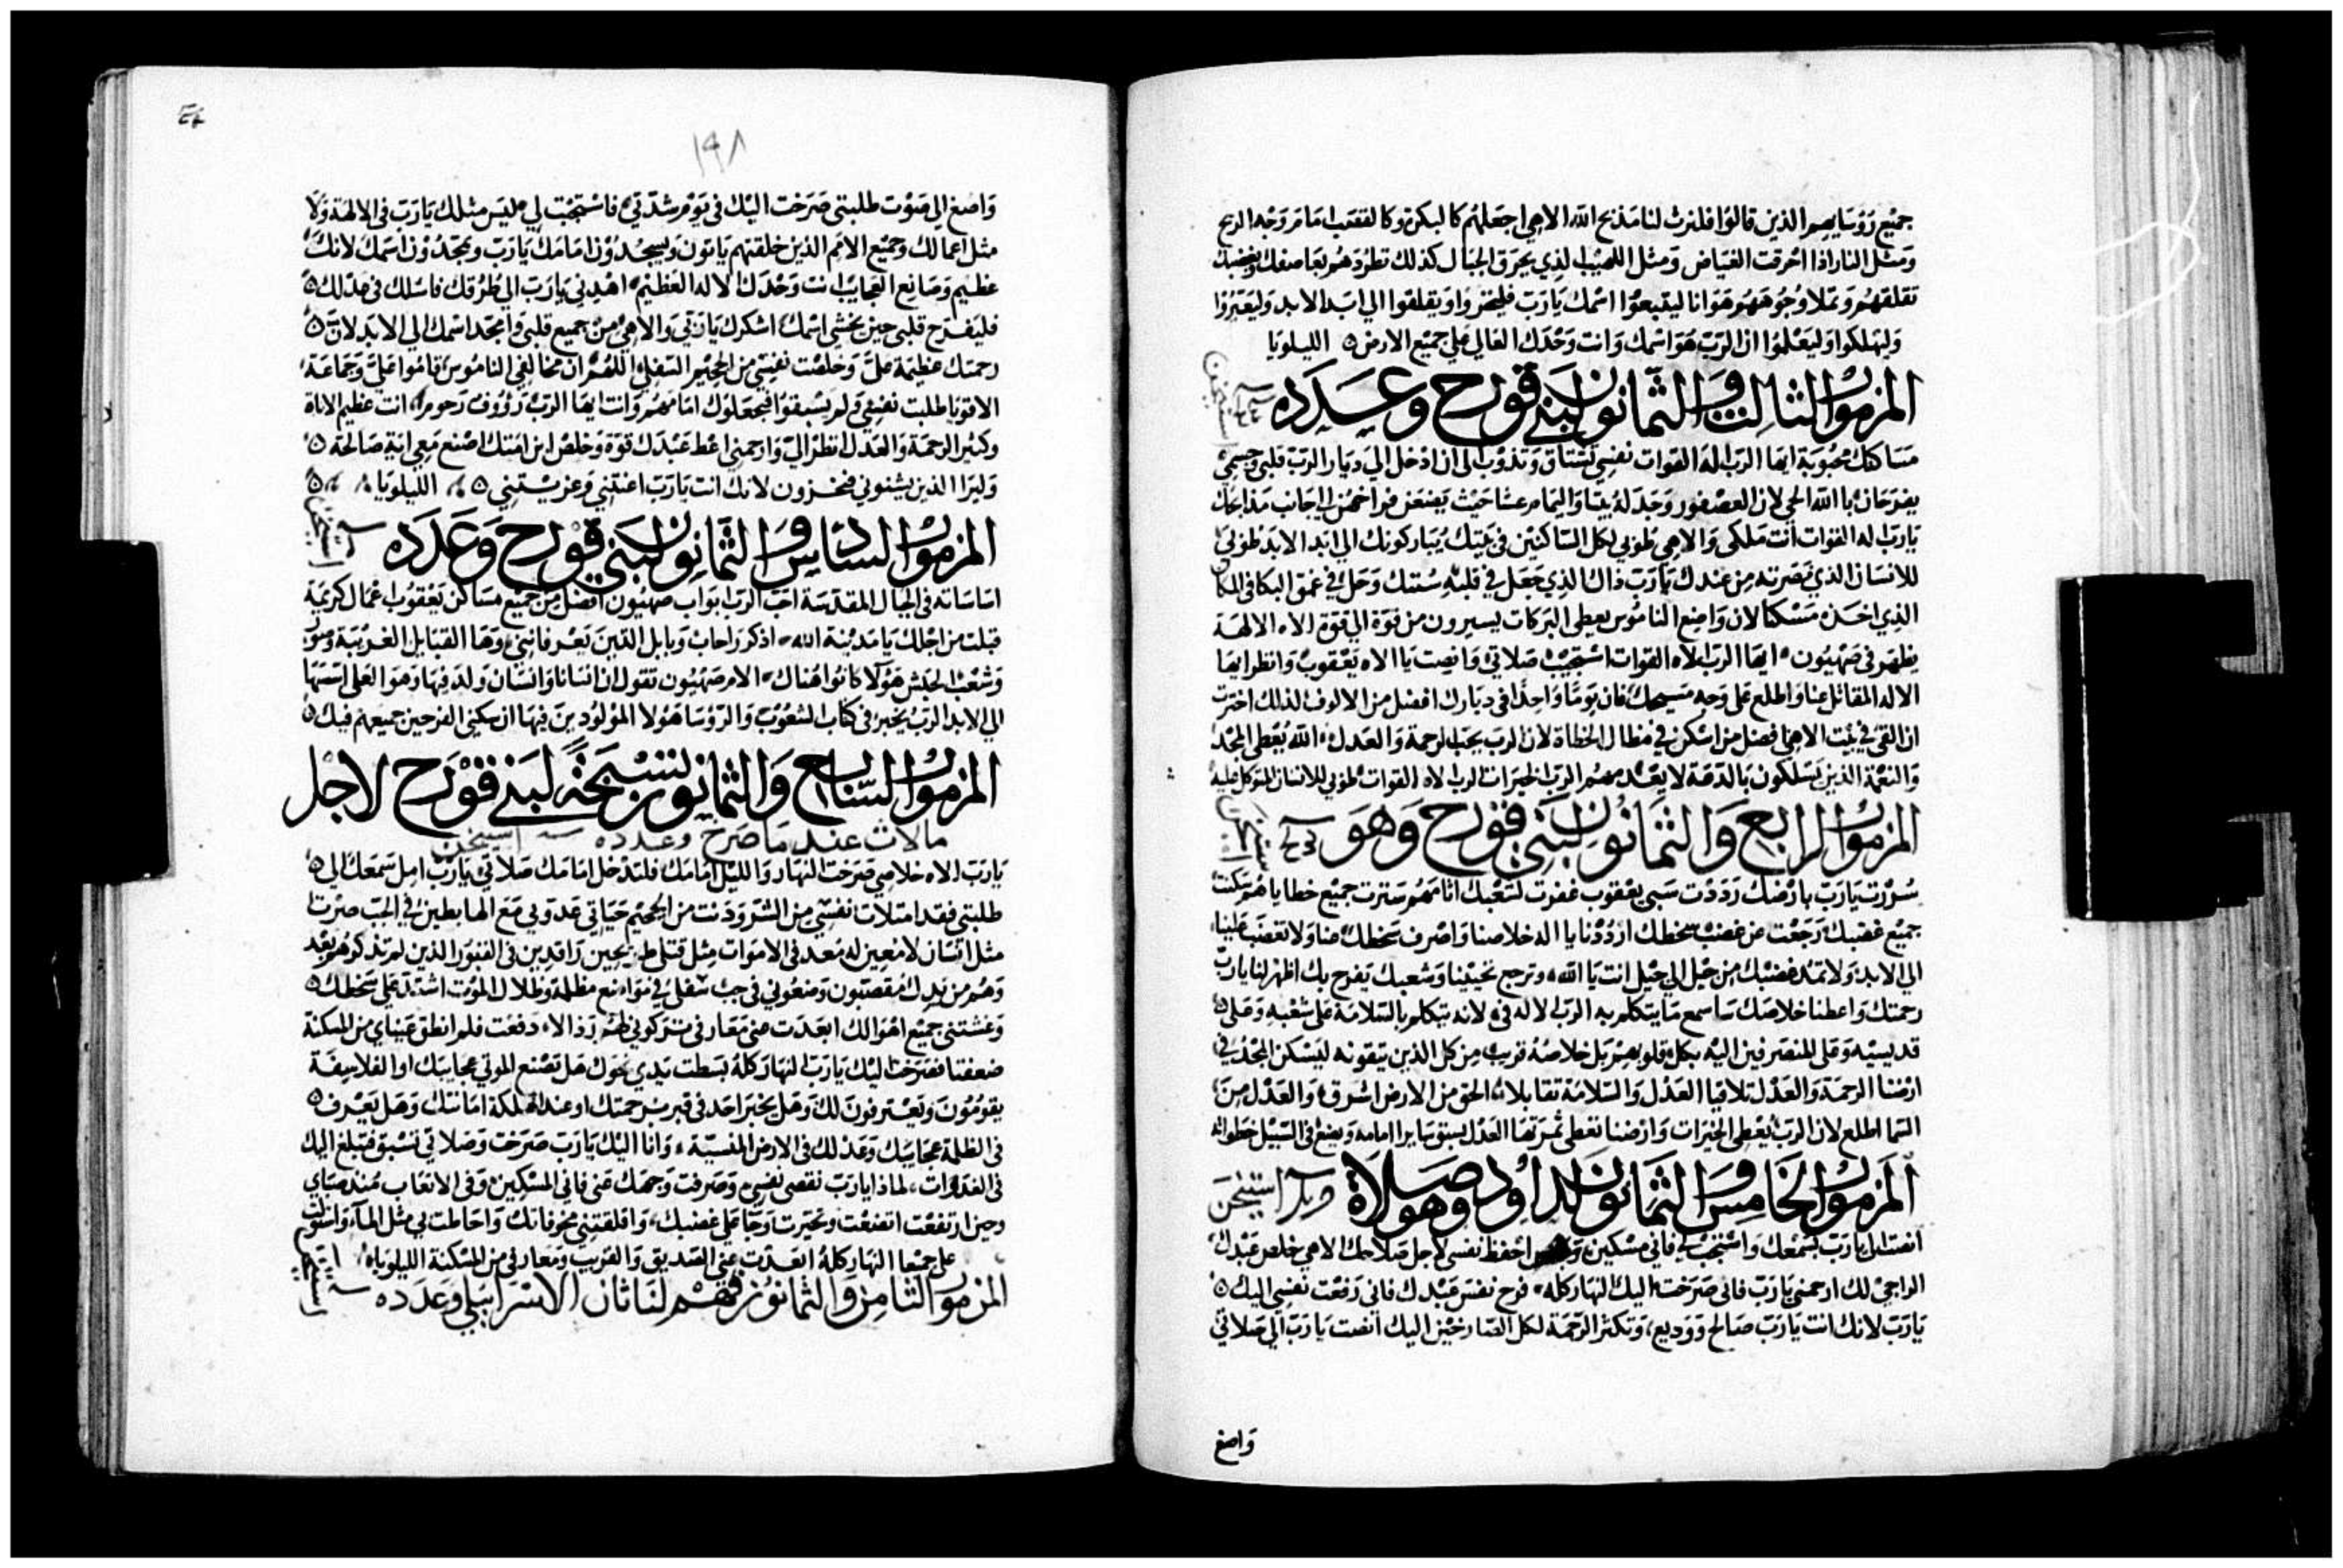 جميع رؤسايهم الذين قالوا فلنرث لنا مذبح الله الاهي اجعلهم كالبكرة وكالقصب امام وجه الريح
ومثل النار اذا احرقت الغياض ومثل اللهيب الذي يحرق الجبال كذلك تطردهم بعاصفك وبغضبك
تقلقهم وتملا وجوههم هوانا ليتبعوا اسمك يا رب فليخزوا ويقلقوا الي ابد الابد وليعبروا
وليهلكوا وليعلموا ان الرب هو اسمك وانت وحدك العالي علي جميع الارض الليلويا
المزمور الثالث والثمانون لبني قورح وعدده
مساكنك محبوبة ايها الرب اله القوات نفسي تشتاق وتذوب الى ان ادخل الي ديار الرب قلبي وجسمي
يفرحان با الله الحي لان العصفور وجد له بيتا واليمام عشا حيث يضعن فراخهن الي جانب مذابحك
يا رب اله القوات انت ملكي والاهي طوبي لكل الساكنين في بيتك يباركونك الي ابد الابد طوبي
للانسان الذي نصرته من عندك يا رب ذاك الذي جعل في قلبه سنتك وحل في عمق البكا في المكان
الذي اخذه مسكنا لان واضع الناموس يعطي البركات يسيرون من قوة الي قوة الاه الالهة
يظهر في صهيون ايها الرب الاه القوات استجيب صلاتي وانصت يا الاه يعقوب وانظر ايها
الاله المقاتل عنا واطلع علي وجه مسيحك فان يوما واحدا في ديارك افضل من الالوف لذلك اخترت
ان القى في بيت الاهي افضل من اسكن في مظال الخطاة لان الرب يحب الرحمة والعدل الله يعطي المجد
والنعمة الذين يسلكون بالدعة لا يعدمهم الرب الخيرات الرب الاه القوات طوبي للانسان المتوكل عليه
المزمور الرابع والثمانون لبني قورح وهو
سررت يا رب بارضك رددت سبي يعقوب غفرت لشعبك اثامهم سترت جميع خطاياهم سكنت
جميع غضبك رجعت عن غضب سخطك ارددنا يا اله خلاصنا واصرف سخطك عنا ولا تغضب علينا
الي الابد ولا تمد غضبك من جيل الي جيل انت يا الله وترجع تحيينا وشعبك يفرح بك اظهر لنا يا رب
رحمتك واعطنا خلاصك سا سمع ما يتكلم به الرب الاله في لانه يتكلم بالسلامة علي شعبه وعلي
قديسيه وعلي المنصرفين اليه بكل قلوبهم بل خلاصه قريب من كل الذين يتقونه ليسكن المجد في
ارضنا الرحمة والعدل تلاقيا العدل والسلامة تقابلا الحق من الارض اشرق والعدل من
السما اطلع لان الرب يعطي الخيرات وارضنا تعطي ثمرتها العدل يسبق سايرا امامه ويضع في السبيل خطواته
المزمور الخامس والثمانون لداود وهو صلاة
انصت الي يا رب بسمعك واستجب لي فاني مسكين احفظ نفسي لاجل صلاحك الاهي خلص عبدك
الراجي لك ارحمني يا رب فاني صرخت اليك النهار كله فرح نفس عبدك فاني رفعت نفسي اليك
يا رب لانك انت يا رب صالح ووديع وتكثر الرحمة لكل الصارخين اليك انصت يا رب الي صلاتي
واصغ
١٩٨
واصغ الي صوت طلبتي صرخت اليك في يوم شدتي فاستجبت لي ليس مثلك يا رب في الالهة ولا
مثل اعمالك وجميع الامم الذين خلقتهم ياتون ويسجدون امامك يا رب ويمجدون اسمك لانك
عظيم وصانع العجايب انت وحدك الاله العظيم اهدني يا رب الى طرقك فاسلك في عدلك
فليفرح قلبي حين يخشي اسمك اشكرك يا ربي والاهي من جميع قلبي وامجد اسمك الي الابد لان
رحمتك عظيمة علي وخلصت نفسي من الجحيم السفلي اللهم ان مخالفي الناموس قاموا علي وجماعة
الاقويا طلبت نفسي ولم يسبقوا فيجعلوك امامهم وانت ايها الرب رؤوف رحوم انت عظيم الاناة
وكثير الرحمة والعدل انظر الي وارحمني اعط عبدك قوة وخلص ابن امتك اصنع معي اية صالحة
وليرا الذين يشنوني فيخزون لانك انت يا رب اعنتني وعزيتني الليلويا
المزمور السادس والثمانون لبني قورح وعدده
اساساته في الجبال المقدسة احب الرب ابواب صهيون افضل من جميع مساكن يعقوب اعمال كريمة
قيلت من اجلك يا مدينة الله اذكر راحاب وبابل الذين يعرفانني وها القبايل الغريبة وصور
وشعب الحبش هولا كانوا هناك الام صهيون تقول ان انسانا وانسان ولد فيها وهو العلي اسسها
الي الابد الرب يخبر في كتاب الشعوب والرؤسا هولا المولودين فيها ان سكني الفرحين جميعهم فيك
المزمور السابع والثمانون تسبحة لبني قورح لاجل
مالات عند ما صرخ وعدده استيخن
يا رب الاه خلاصي صرخت النهار والليل امامك فلتدخل امامك صلاتي يا رب امل سمعك الي
طلبتي فقد امتلات نفسي من الشر ودنت من الجحيم حياتي عدوني مع الهابطين في الجب صرت
مثل انسان لا معين له معد في الاموات مثل قتلي طريحين راقدين في القبور الذين لم تذكرهم بعد
وهم من يدك مقصيون وضعوني في جب سفلي في مواضع مظلمة وظلال الموت اشتد علي سخطك
وغشتني جميع اهوالك ابعدت عني معارفي تركوني لهم رذالا دفعت فلم انطق عيناي من المسكنة
ضعفتا فصرخت اليك يا رب النهار كله بسطت يدي نحوك هل تصنع الموتي عجايبك او الفلاسفة
يقومون ويعترفون لك وهل يخبر احد في قبر برحمتك او عند الهلكة امانتك وهل يعرف
في الظلمة عجايبك وعدلك في الارض المنسية وانا اليك يا رب صرخت وصلاتي تسبق فتبلغ اليك
في الغدوات لماذا يا رب تقصي نفسي وصرفت وجهك عني فاني المسكين وفي الاتعاب منذ صباي
وحين ارتفعت اتضعت وتحيرت وجا علي غضبك واقلقتني مخوفاتك واحاطت بي مثل الماء واستولت
علي جميعا النهار كله ابعدت عني الصديق والقريب ومعارفي من المسكنة الليلوياه
المزمور الثامن والثمانون فهم لناثان الاسراييلي وعدده